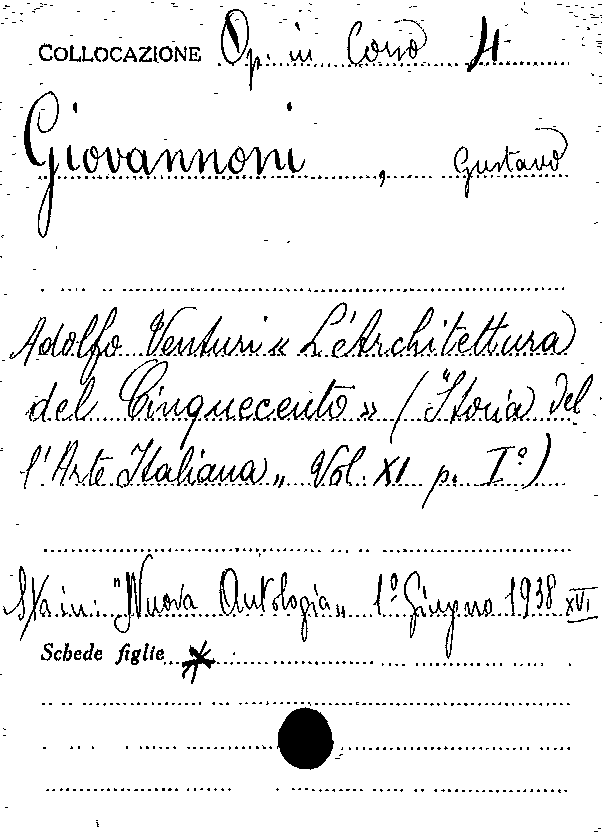 COLLOCAZIONE Op. in Corso 4
Giovannoni, Gustavo
Adolfo Venturi « L'Architettura
del Cinquecento » ( "Storia del
l'Arte Italiana„ Vol. XI p. I°)
Sta in: "Nuova Antologia„ 1° Giugno 1938 XVI
Schede figlie *